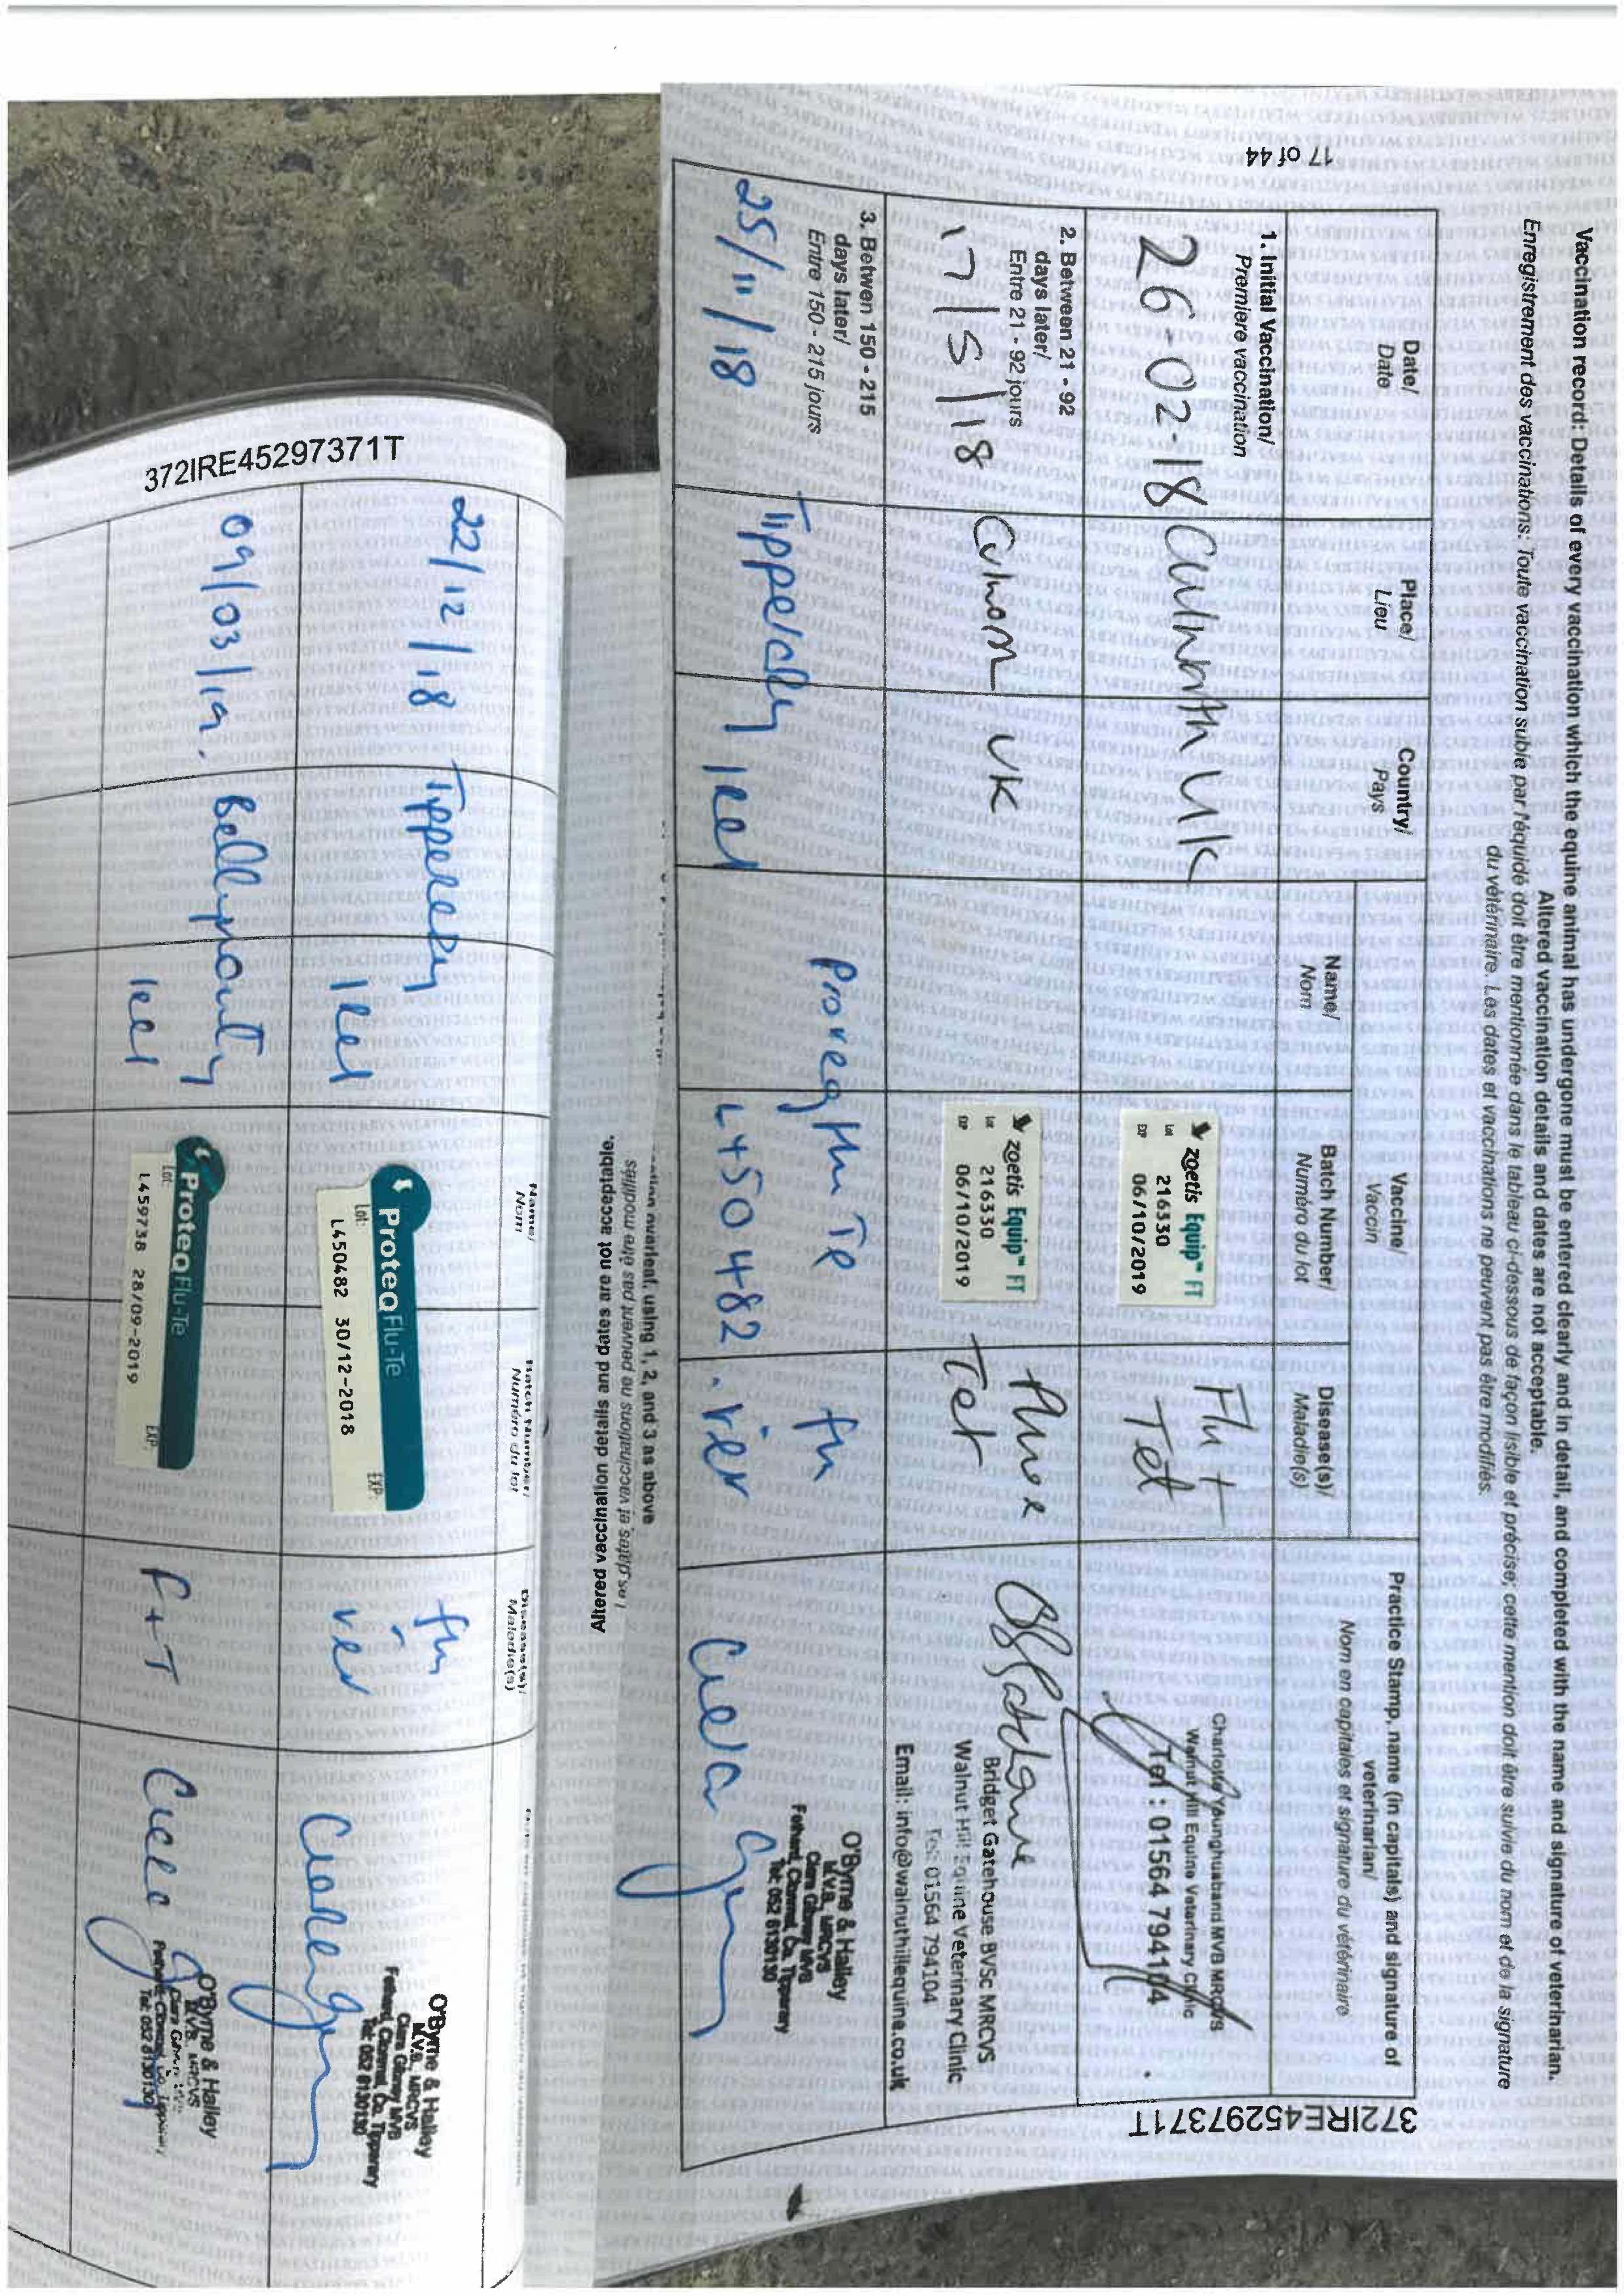 Vaccination record: Details of every vaccination which the equine animal has undergone must be entered clearly and in detail, and completed with the name and signature of veterinarian.
Altered vaccination details and dates are not acceptable.
Enregistrement des vaccinations: Toute vaccination subie par l'équidé doit être mentionnée dans le tableau ci-dessous de façon lisible et précise; cette mention doit être suivie du nom et de la signature
du vétérinaire. Les dates et vaccinations ne peuvent pas être modifiés.
17 of 44
372IRE45297371T
Date/
Date
Place/
Lieu
Country/
Pays
Vaccine/
Vaccin
Name/
Nom
Batch Number/
Numéro du lot
Disease(s)/
Maladie(s)
Practice Stamp, name (in capitals) and signature of
veterinarian/
Nom en capitales et signature du vétérinaire
1. Initial Vaccination/
Premiere vaccination
26-02-18
UK
zoetis Equip™ FT
Lot 216330
EXP 06/10/2019
Flu +
Tet
Charlotte Younghusband MVB MRCVS
Walnut Hill Equine Veterinary Clinic
Tel : 01564 794104
2. Between 21 - 92
days later/
Entre 21 - 92 jours
17/5/18
UK
zoetis Equip™ FT
Lot 216330
EXP 06/10/2019
Tet
Bridget Gatehouse BVSc MRCVS
Walnut Hill Equine Veterinary Clinic
Tel: 01564 794104
Email: info@walnuthillequine.co.uk
3. Betwen 150 - 215
days later/
Entre 150 - 215 jours
25/11/18
Tipperary
Irel
Te
L450482
O'Byrne & Halley
M.V.B., MRCVS
Fethard, Clonmel, Co. Tipperary
Tel: 052 6130130
overleaf, using 1, 2, and 3 as above
Altered vaccination details and dates are not acceptable.
372IRE45297371T
Name/
Nom
Batch Number/
Numéro du lot
Disease(s)/
Maladie(s)
22/12/18
Tipperary
Irel
ProteqFlu-Te
Lot: EXP:
L450482 30/12-2018
O'Byrne & Halley
M.V.B., MRCVS
Fethard, Clonmel, Co. Tipperary
Tel: 052 6130130
09/03/19.
Irel
ProteqFlu-Te
Lot: EXP:
L459738 28/09-2019
F+T
O'Byrne & Halley
M.V.B., MRCVS
Tel: 052 6130130